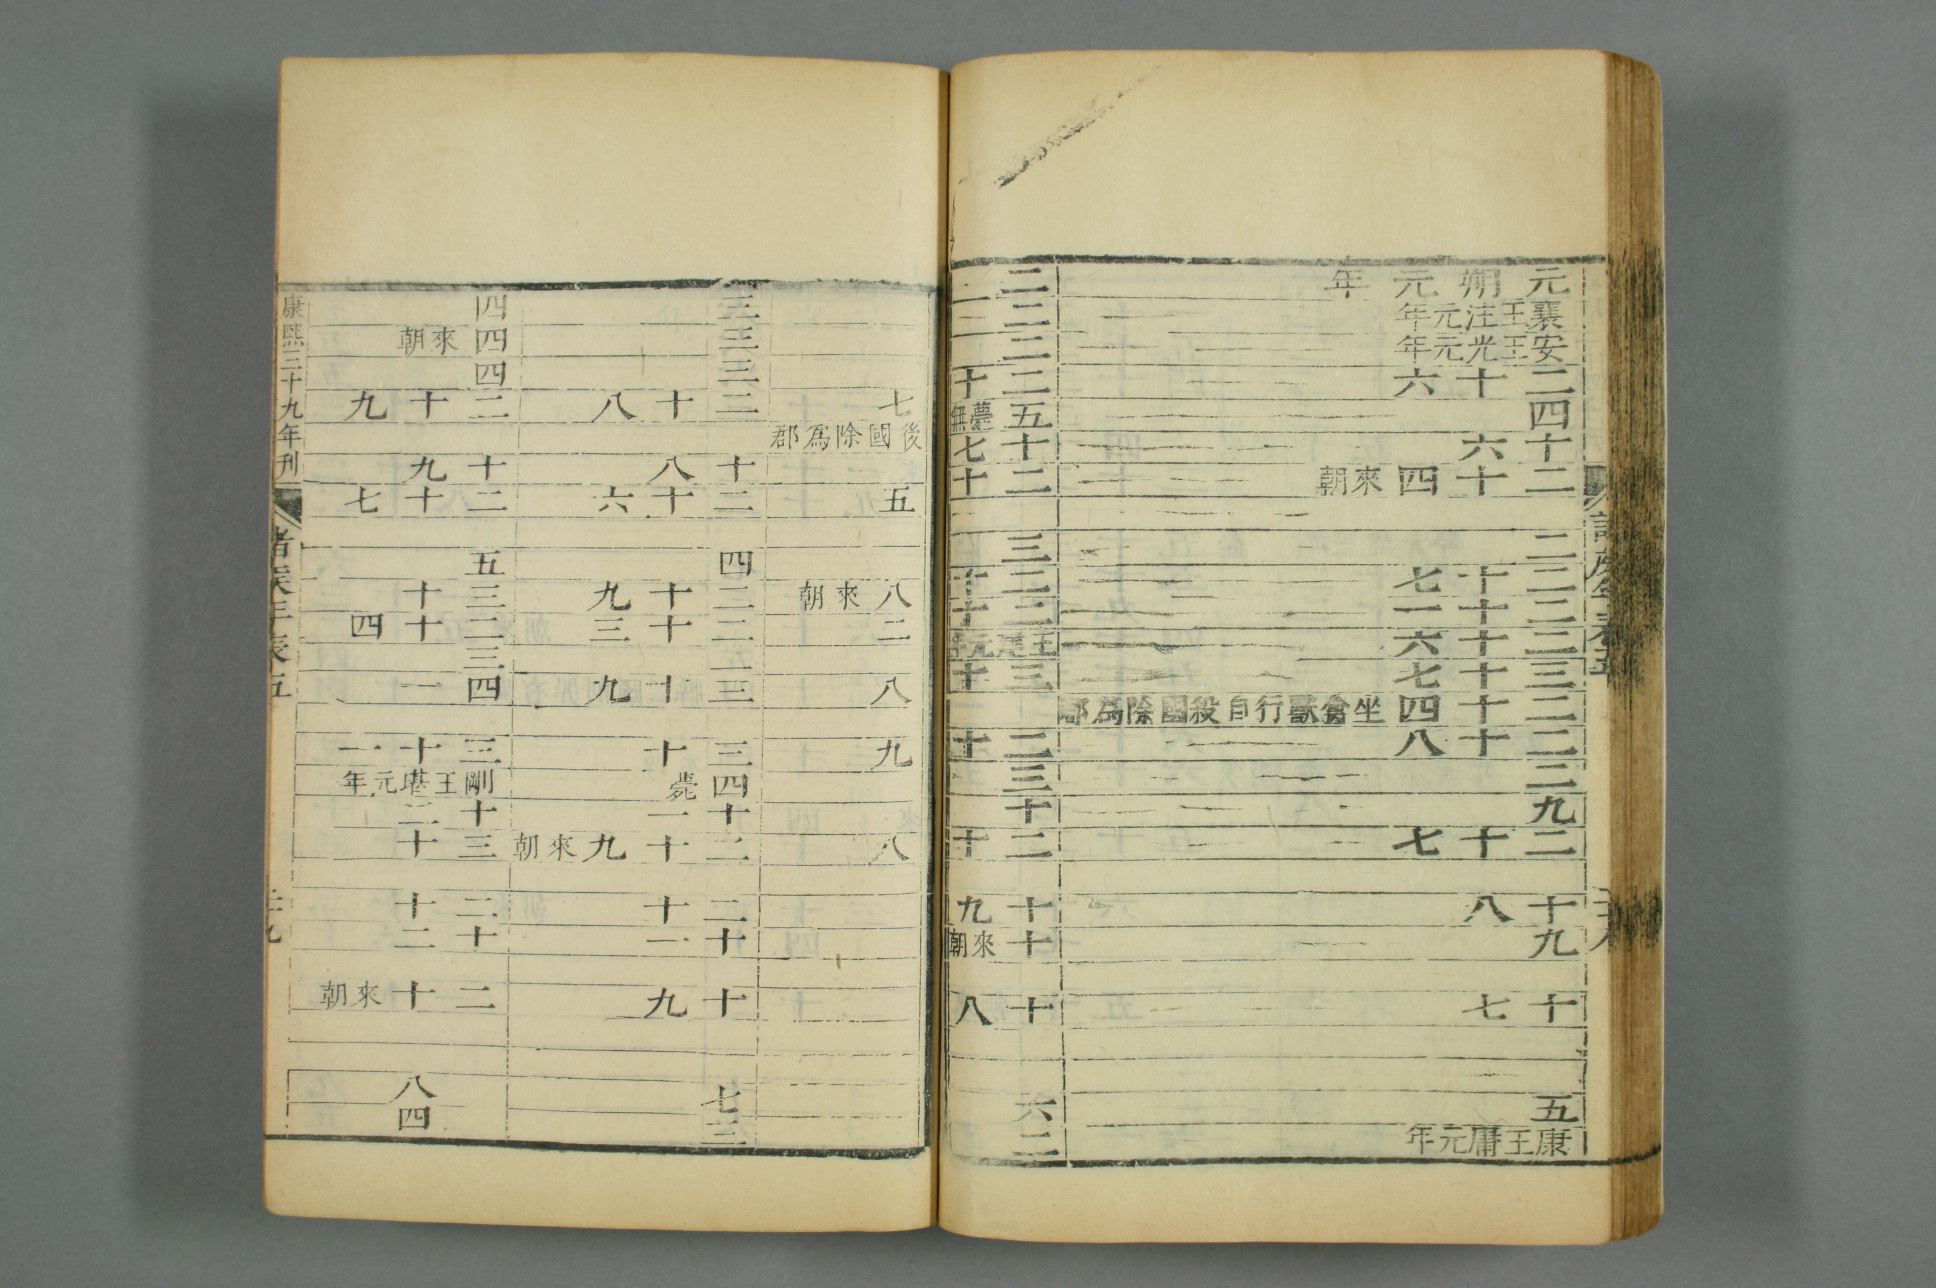 元朔元年
襄王注元年
安王光元年
二十六
四
十六
二十四來朝
二
二十七
二十一
二十六
三十七
二十四坐禽獸行自殺國除爲郡
二十八
二
九
二十七
十八
九
十七
五
康王庸元年
二
二
二
二十七
五薨無後國除爲郡
十七
二十五
三
二十八來朝
二十二
三十八
二十九
三
十
二十八
十九
十來朝
十八
六
二
三
三
三
二十八
十八
二十六
四
二十九
二十三
二
三十九
三十
四薨
十一
二十九來朝
二十
十一
十九
七
三
四
四來朝
四
二十九
十九
二十七
五
三十
二十四
三
四一
三十一
剛王堪元年
十二
三十
二十
十二
二十來朝
八
四
康熙三十九年刊
諸侯年表五